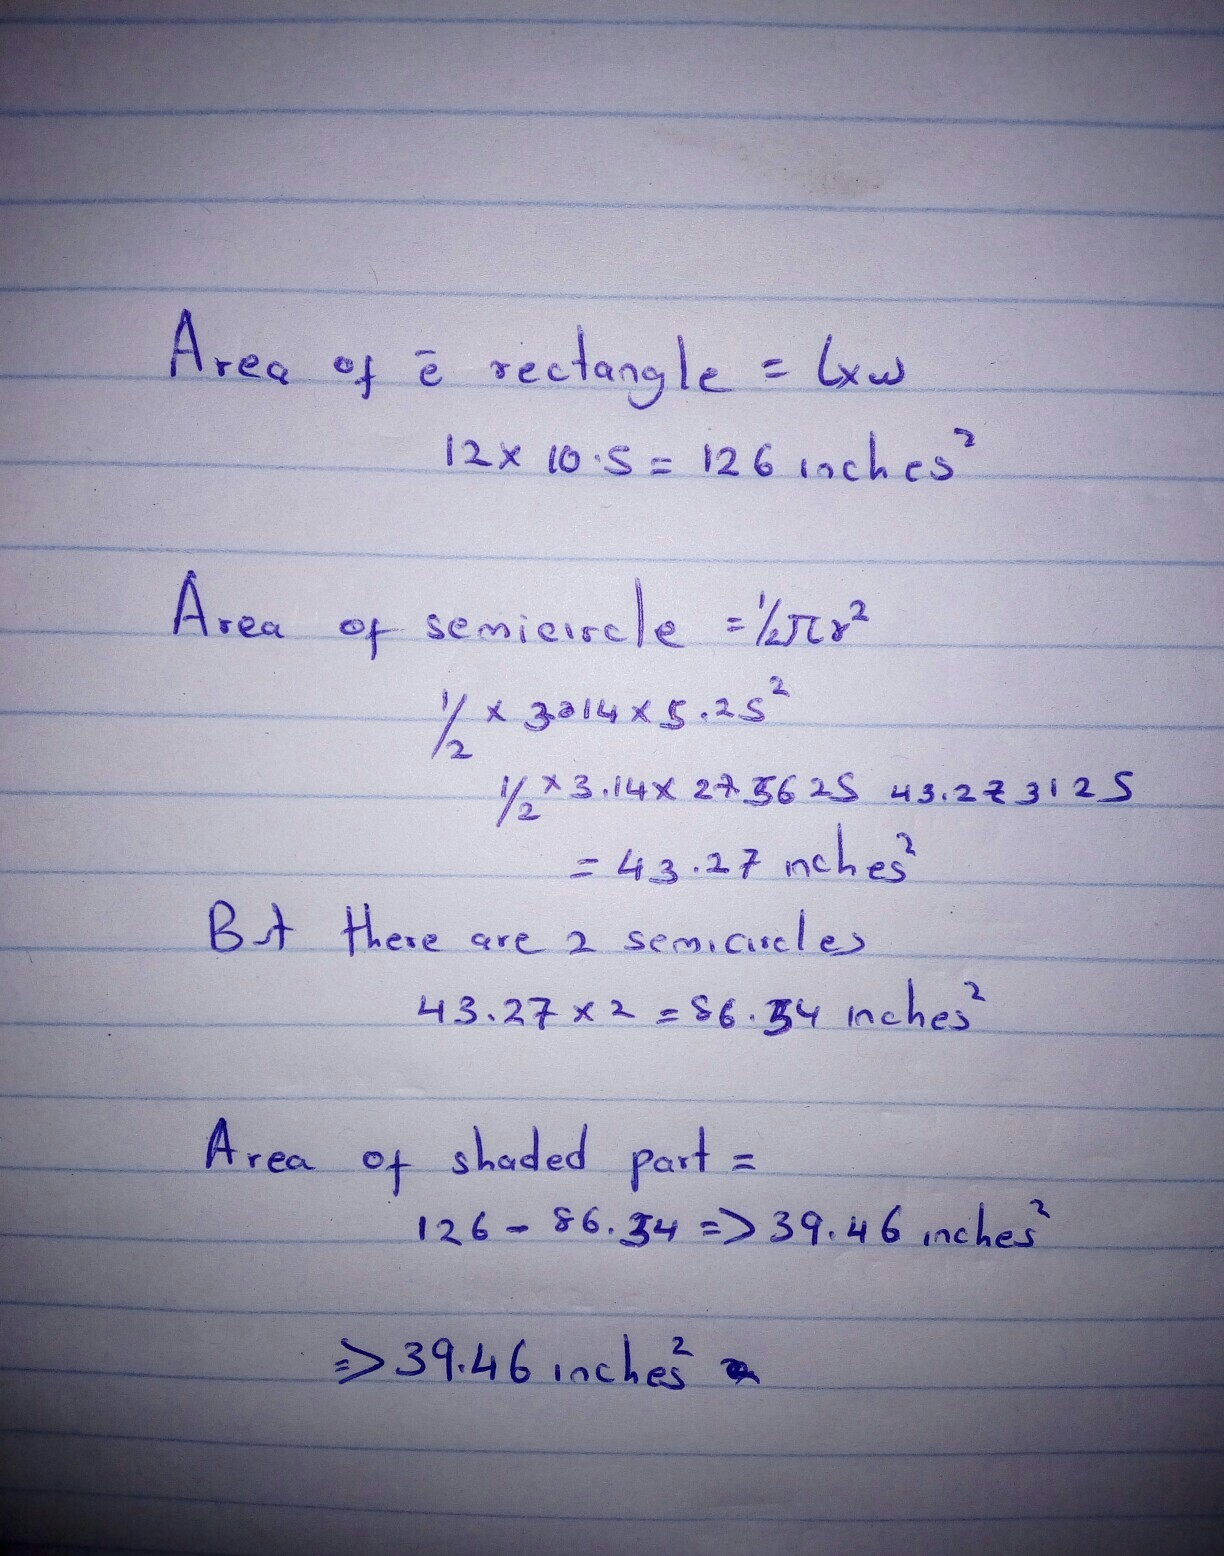 Area of ē rectangle = l×w
12× 10.5 = 126 inches²
Area of semicircle = 1/2πr²
1/2 × 3.14 × 5.25²
1/2 × 3.14× 27.5625 43.273125
= 43.27 nches²
But there are 2 semicircles
43.27 × 2 = 86.54 inches²
Area of shaded part =
126 - 86.54 => 39.46 inches²
=> 39.46 inches²